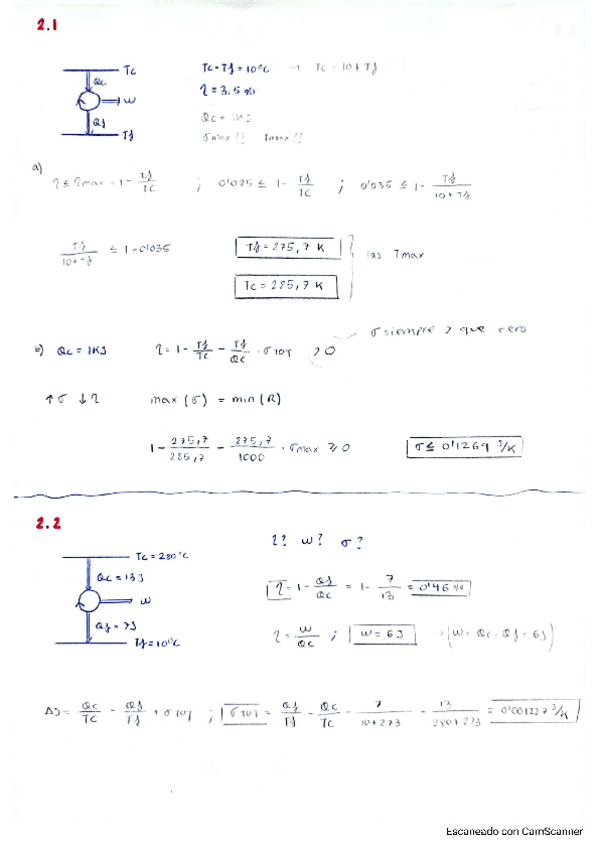 2.1
Tc
Qc
W
Qf
Tf
Tc - Tf = 10°C → Tc = 10 + Tf
η = 3.5 %
Qc = 1KJ
σmax?? Tmax??
a)
η ≤ ηmax = 1 - Tf/Tc ; 0'035 ≤ 1 - Tf/Tc ; 0'035 ≤ 1 - Tf/(10+Tf)
Tf/(10+Tf) ≤ 1 - 0'035
Tf = 275,7 K
Tc = 285,7 K
las Tmax
b) Qc = 1KJ η = 1 - Tf/Tc - Tf/Qc · σ TOT ≥ 0
σ siempre > que cero
↑σ ↓η max (σ) = min (R)
1 - 275,7/285,7 - 275,7/1000 · σmax ≥ 0 σ ≤ 0'1269 J/K
2.2
η? W? σ?
Tc = 280°C
Qc = 13J
W
Qf = 7J
Tf = 10°C
η = 1 - Qf/Qc = 1 - 7/13 = 0'46 %
η = W/Qc ; W = 6J (W = Qc - Qf = 6J)
ΔS = Qc/Tc - Qf/Tf + σ TOT ; σ TOT = Qf/Tf - Qc/Tc = 7/(10+273) - 13/(280+273) = 0'001227 J/K
Escaneado con CamScanner